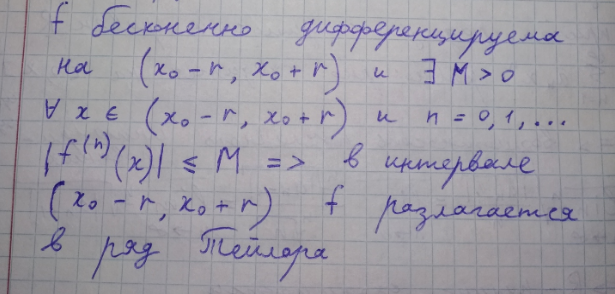 f бесконечно дифференцируема
на (x₀ - r, x₀ + r) и ∃ M > 0
∀ x ∈ (x₀ - r, x₀ + r) и n = 0, 1, ...
|f⁽ⁿ⁾(x)| ≤ M => в интервале
(x₀ - r, x₀ + r) f разлагается
в ряд Тейлора